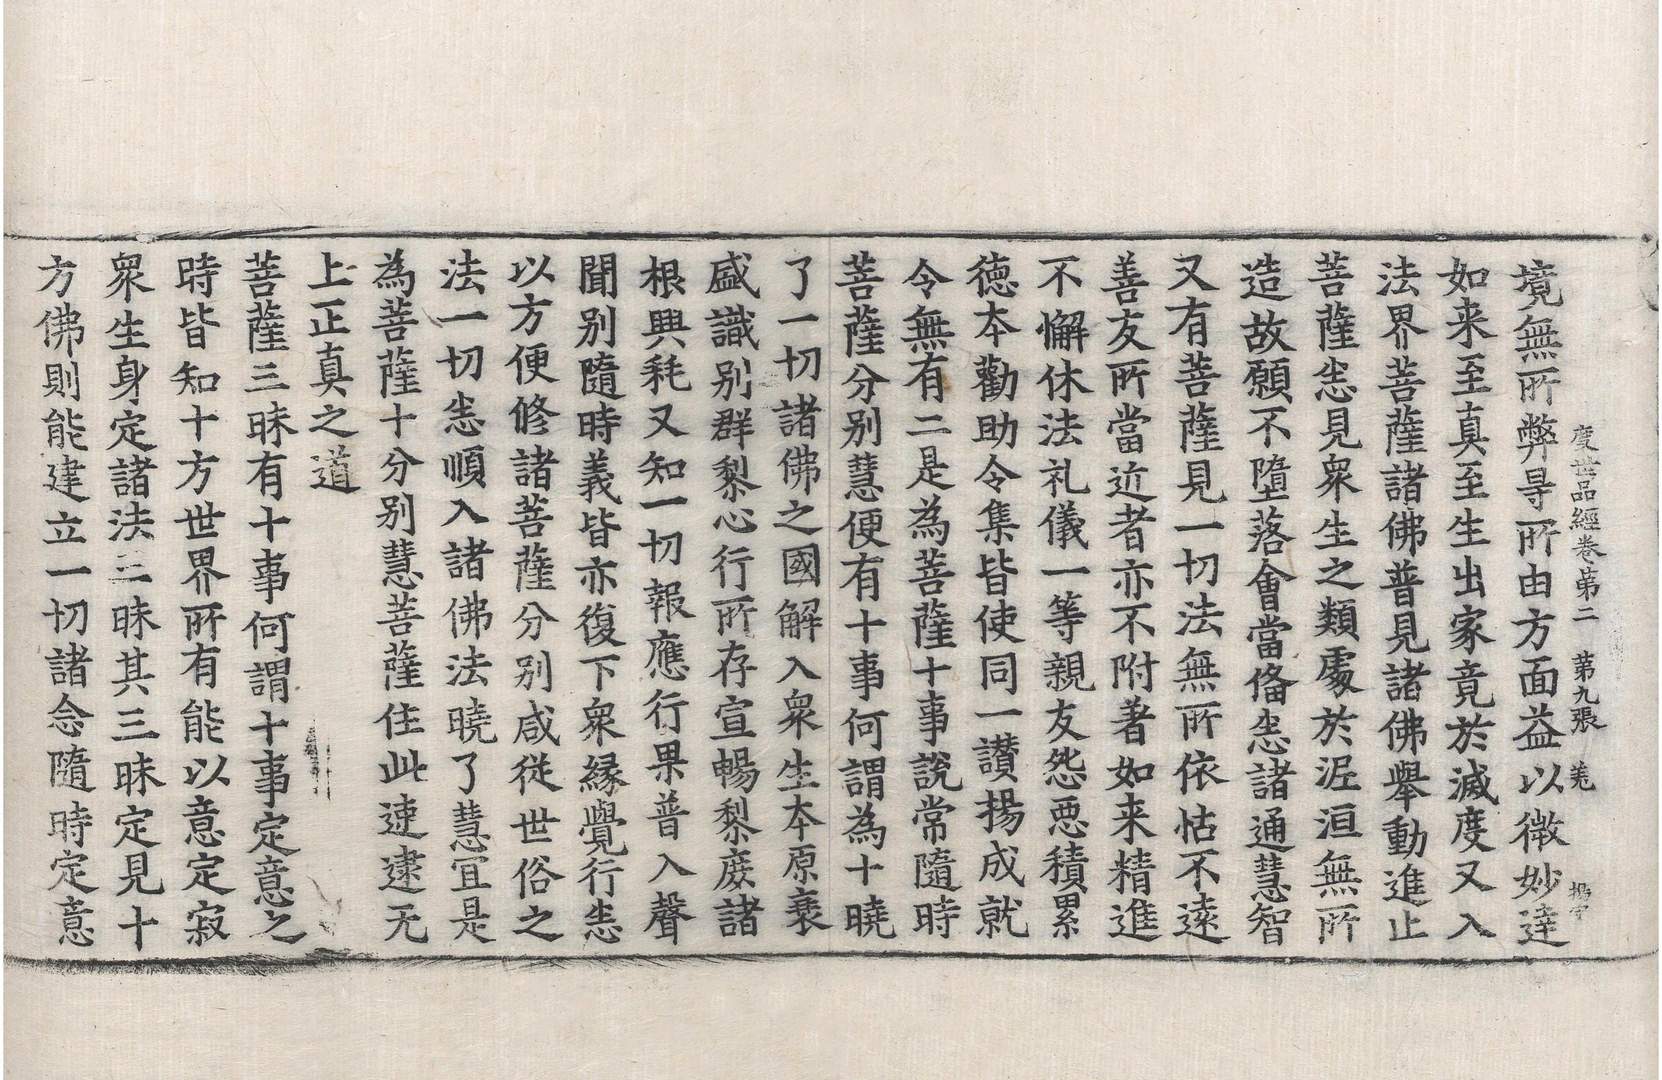 度世品經卷第二　第九張　羌
境無所弊㝵所由方面益以微妙達
如来至真至生出家竟於滅度又入
法界菩薩諸佛普見諸佛舉動進止
菩薩悉見衆生之類處於泥洹無所
造故願不墮落會當俻悉諸通慧智
又有菩薩見一切法無所依怙不遠
善友所當近者亦不附著如来精進
不懈休法礼儀一等親友怨惡積累
德本勸助令集皆使同一讃揚成就
令無有二是為菩薩十事說常隨時
菩薩分别慧便有十事何謂為十曉
了一切諸佛之國解入衆生本原衰
盛識别群黎心行所存宣暢黎庻諸
根興耗又知一切報應行果普入聲
聞别隨時義皆亦復下衆縁覺行悉
以方便修諸菩薩分别咸従世俗之
法一切悉順入諸佛法曉了慧冝是
為菩薩十分别慧菩薩住此速逮无
上正真之道
菩薩三昧有十事何謂十事定意之
時皆知十方世界所有能以意定寂
衆生身定諸法三昧其三昧定見十
方佛則能建立一切諸念隨時定意